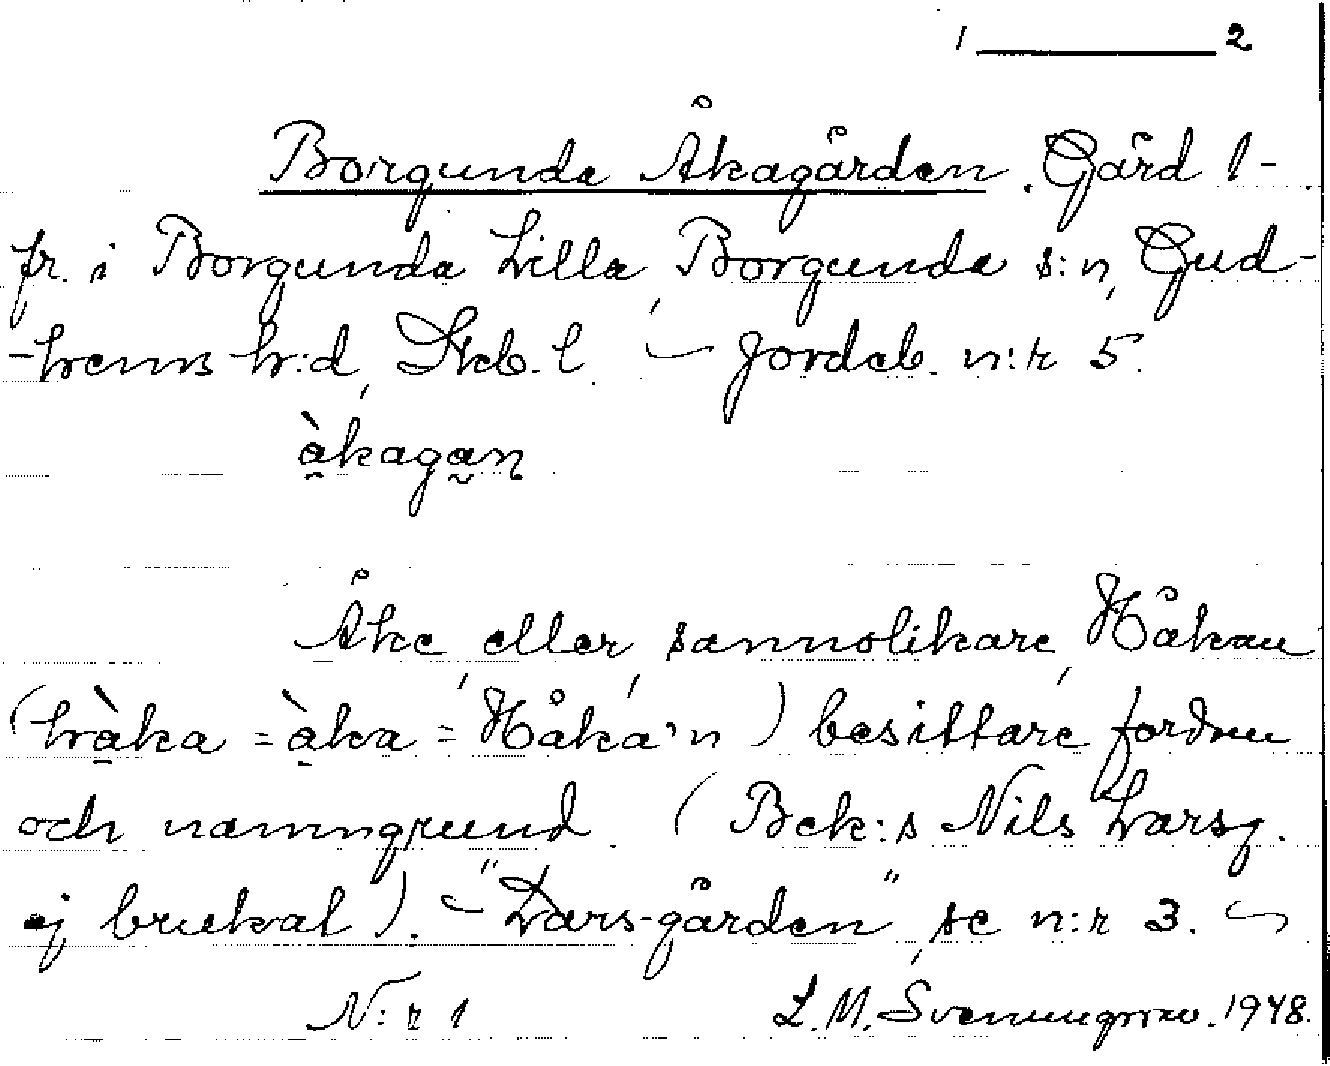 1 ——— 2
Borgunda Åkagården. Gård 1-
fr. i Borgunda Lilla, Borgunda s:n, Gud-
-hems h:d, Skb. l. — Jordeb. n:r 5.
àkagan
Åke, eller, sannolikare, Håkan
(hàka = àka = Håka'n) besittare fordom
och namngrund. (Bek:s Nils Larsg.
ej brukat). — "Lars-gården", se n:r 3. —
N:r 1 L. M. Svenungsson. 1948.